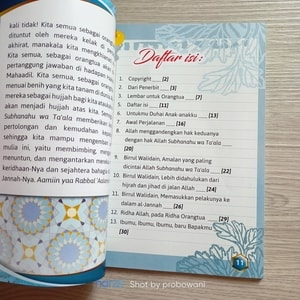 kali tidak! Kita semua sebagai orang
dituntut oleh mereka kelak di
akhirat, manakala kita mengkhianati
Kita semua, sebagai orangtua akan
pertanggung jawaban di hadapan
Mahaadil. Kita semua, sebagai orang
menuai benih yang kita tanam di dunia
mereka sebagai hujjah bagi kita atau
akan menjadi hujjah atas kita. Semoga
Subhanahu wa Ta'ala memberikan
pertolongan dan kemudahan kepada
sehingga kita mampu mengemban
mulia ini, yaitu membimbing,
menuntun, dan mengantarkan mereka
keridhaan-Nya dan sejahtera bahagia di
Jannah-Nya. Aamiin yaa Rabbal
Daftar isi:
1. Copyright ___ [2]
2. Dari Penerbit ___ [3]
3. Lembar untuk Orangtua ___ [7]
4. Daftar isi ___ [11]
5. Untukmu Duhai Anak-anakku ___ [13]
6. Awal Perjalanan ___ [16]
8. Allah menggandengkan hak keduanya
dengan hak Allah Subhanahu wa Ta'ala ___
[20]
9. Birrul Walidain, Amalan yang paling
dicintai Allah Subhanahu wa Ta'ala ___ [22]
10. Birrul Walidain, Lebih didahulukan dari
hijrah dan jihad di jalan Allah ___ [24]
11. Birrul Walidain, Memasukkan pelakunya ke
dalam al-Jannah ___ [26]
12. Ridha Allah, pada Ridha Orangtua ___ [29]
13. Ibumu, Ibumu, Ibumu, baru Bapakmu ___
[30]
11
Shot by probowani